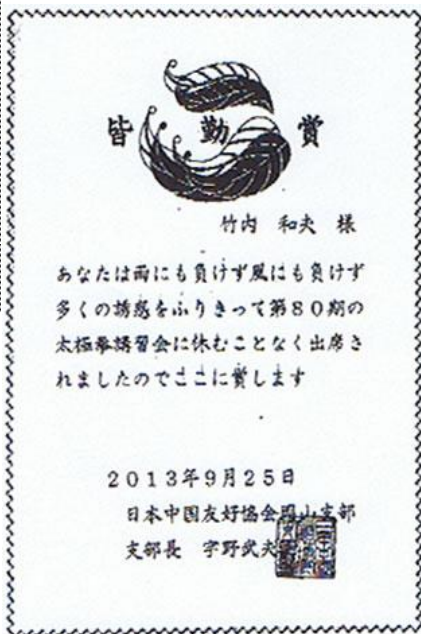 皆勤賞
竹内 和夫 様
あなたは雨にも負けず風にも負けず
多くの誘惑をふりきって第80期の
太極拳講習会に休むことなく出席さ
れましたのでここに賞します
2013年9月25日
日本中国友好協会岡山支部
支部長 宇野武夫